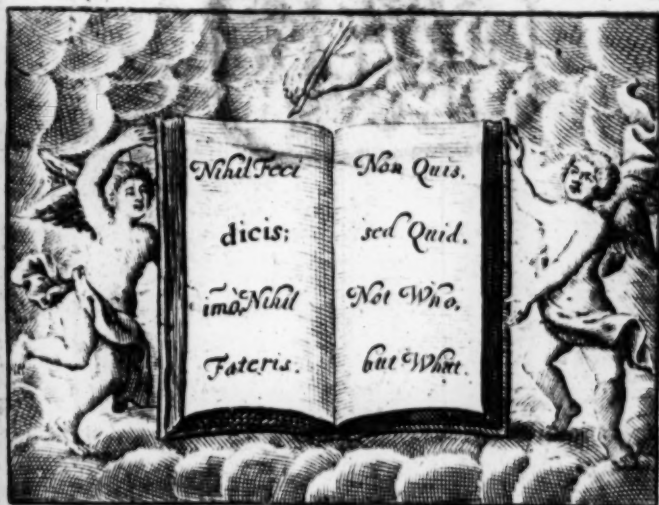 Nihil Feci
dicis;
im̃ò, Nihil
Fateris.
Non Quis,
sed Quid.
Not Who,
but What.